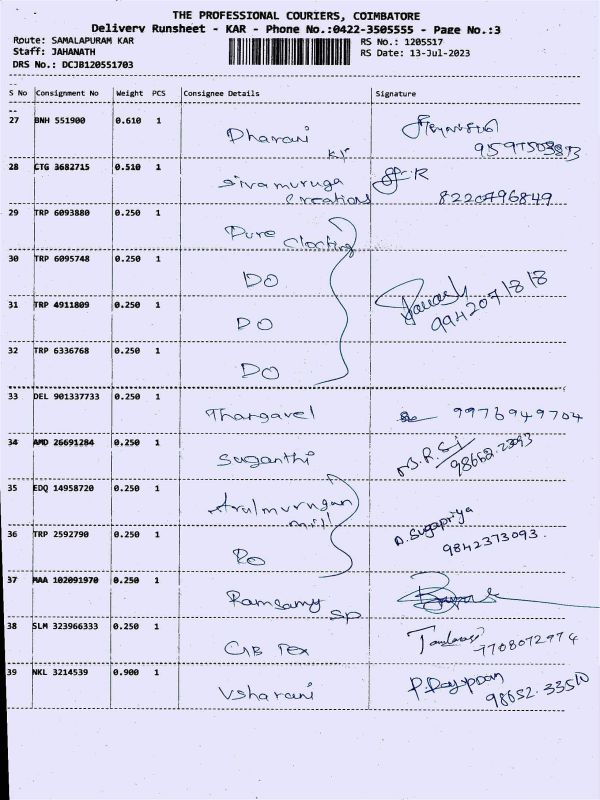 THE PROFESSIONAL COURIERS, COIMBATORE
Delivery Runsheet - KAR - Phone No.:0422-3505555 - Page No.:3
Route: SAMALAPURAM KAR
RS No.: 1205517
Staff: JAHANATH
RS Date: 13-Jul-2023
DRS No.: DCJB120551703
S No Consignment No Weight PCS Consignee Details Signature
27 BNH 551900 0.610 1 Dharani
KY
28 CTG 3682715 0.510 1 Sivamuruga
Creations
8220796849
29 TRP 6093880 0.250 1 Pure Clorting
30 TRP 6095748 0.250 1 DO
9942071818
31 TRP 4911809 0.250 1 DO
32 TRP 6336768 0.250 1 DO
33 DEL 901337733 0.250 1 Thangavel 9976949704
34 AMD 26691284 0.250 1 Suganthi
98662.2393
35 EDQ 14958720 0.250 1 Arulmurugan
mill
D.Sugapriya
36 TRP 2592790 0.250 1 DO 9842373093.
37 MAA 102091970 0.250 1 Ramsamy SP
38 SLM 323966333 0.250 1 GB Tex 7708072974
39 NKL 3214539 0.900 1 Vsharani